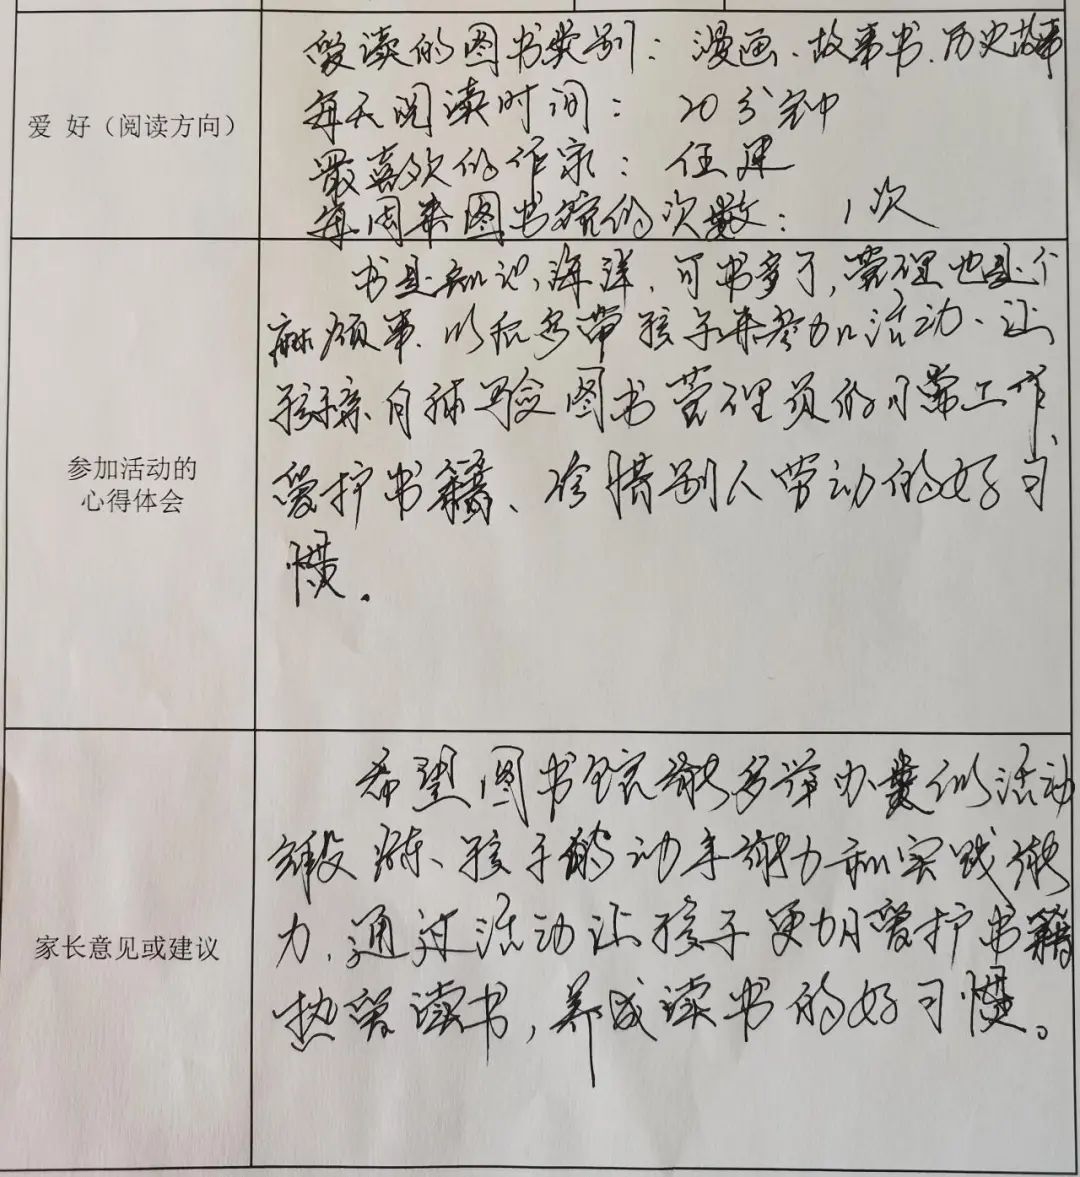 爱 好（阅读方向）
爱读的图书类别：漫画、故事书、历史故事
每天阅读时间：20分钟
最喜欢的作家：任建
每周来图书馆的次数：1次
参加活动的
心得体会
书是知识海洋，可书多了，管理也是个
麻烦事，以后多带孩子来参加活动、让
孩子亲自体验图书管理员的日常工作，
爱护书籍、珍惜别人劳动的好习
惯。
家长意见或建议
希望图书馆能多举办类似活动
锻炼、孩子的动手能力和实践能
力，通过活动让孩子更加爱护书籍
热爱读书，养成读书的好习惯。